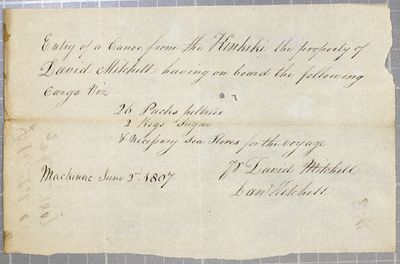 Entry of a Canoe from the Kinkiki the property of
David Mitchell having on board the following
Cargo Viz
26 Packs Peltries
2 Kegs Sugar
& necessary Sea Stores for the voyage
Mackinac June 2d 1807
Pr David Mitchell
Danl Mitchell